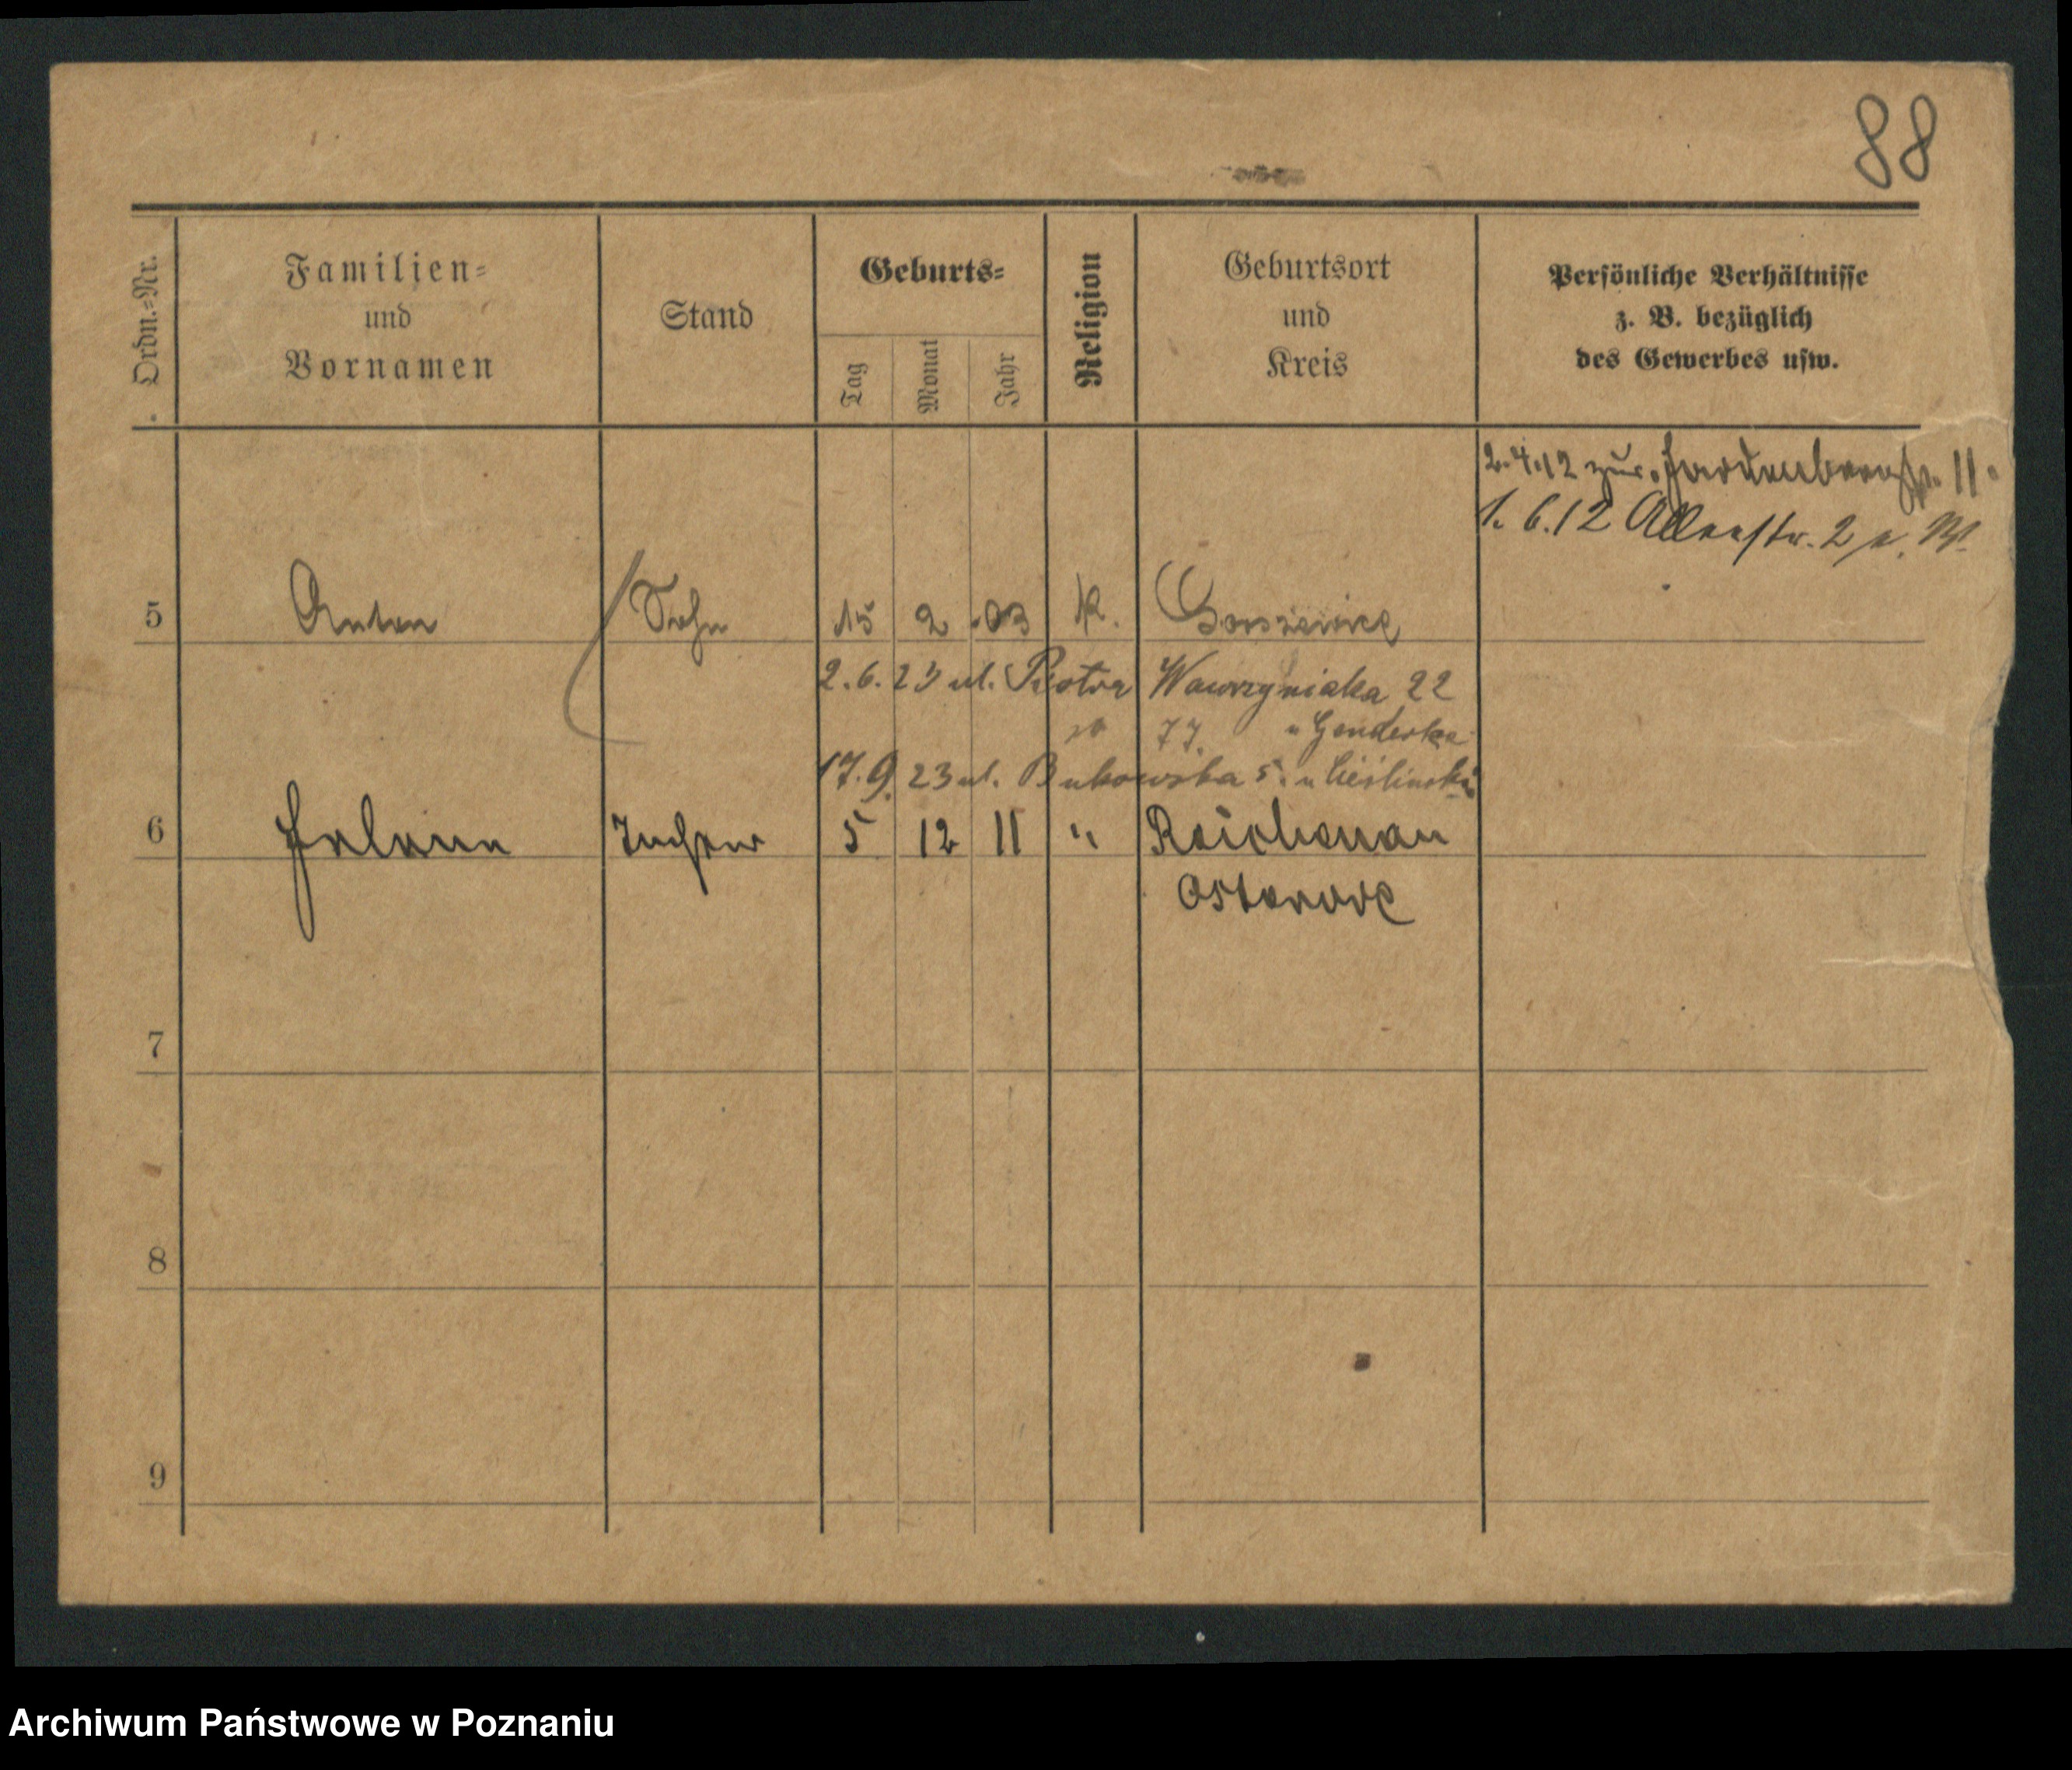 88
Ordn.-Nr.
Familien-
und
Vornamen
Stand
Geburts-
Tag
Monat
Jahr
Religion
Geburtsort
und
Kreis
Persönliche Verhältnisse
z. B. bezüglich
des Gewerbes usw.
2.4.12 zur. 11.
1.6.12 Allerstr. 2
5 Anton Sohn 15 2 .03 K.
2.6.23 ul. Piotra Wawrzyniaka 22
77. u Genderka
17.9.23 ul. Bukowska 5. u Cieślinski
6 Helene Tochter 5 12 11 " Reichenau
Osterode
7
8
9
Archiwum Państwowe w Poznaniu